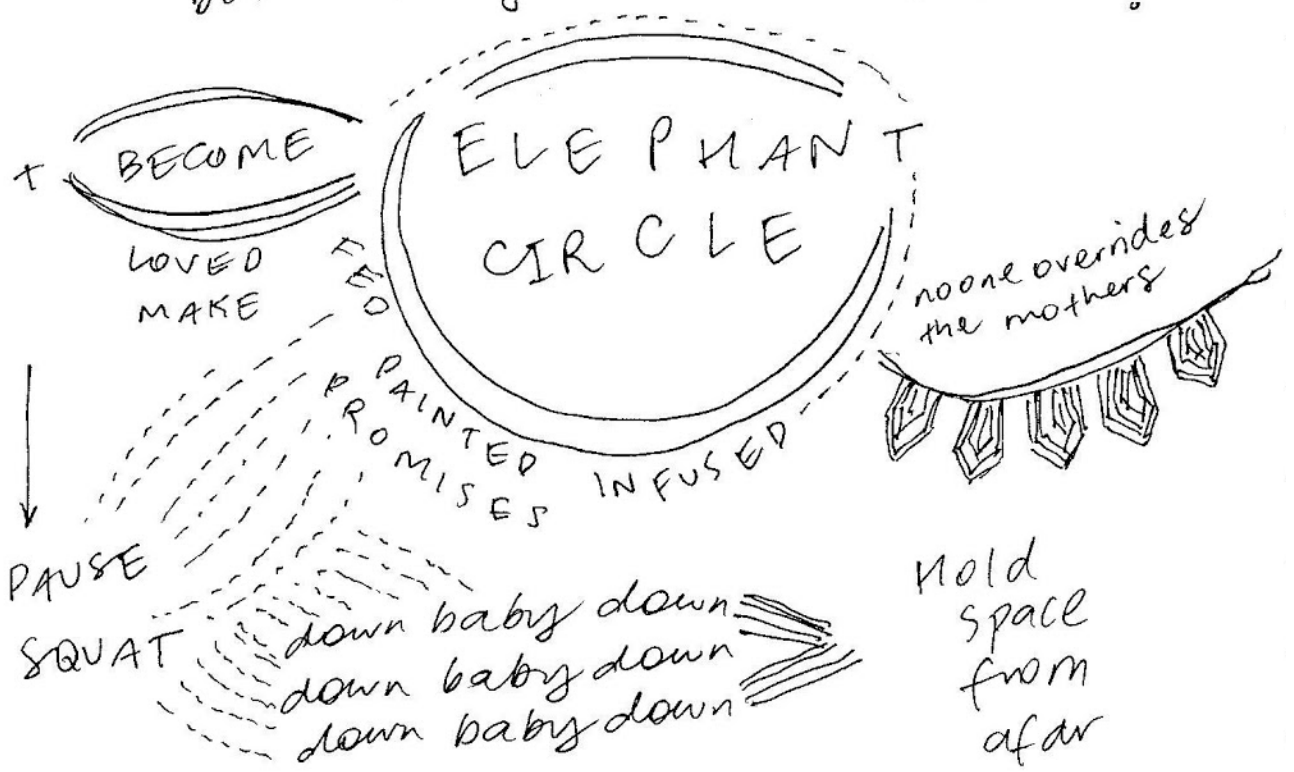 + BECOME
LOVED
MAKE
ELEPHANT
CIRCLE
FED
PAINTED
PROMISES
INFUSED
no one overrides
the mothers
PAUSE
SQUAT
down baby down
down baby down
down baby down
Hold
space
from
afar